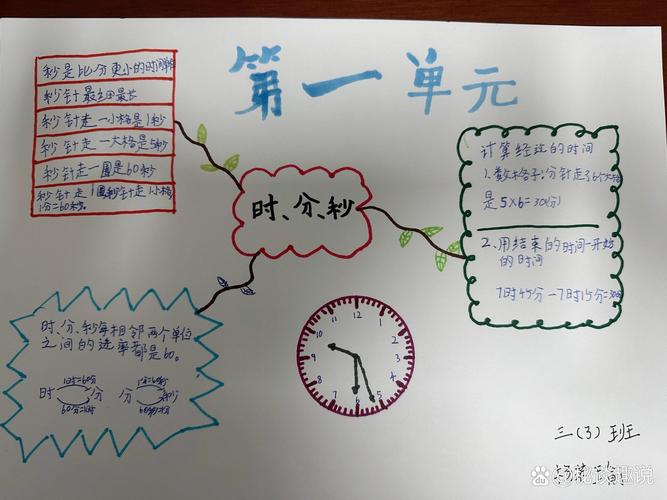 第一单元
秒是比分更小的时间单位
秒针最细最长
秒针走一小格是1秒
秒针走一大格是5秒
秒针走一圈是60秒
秒针走1圈,分针走1小格
1分=60秒。
时、分、秒
计算经过的时间
1.数格子:分针走了6个大格
是5×6=30(分)
2.用结束的时间-开始
的时间
7时45分-7时15分=30分
时、分、秒每相邻两个单位
之间的进率都是60。
1时=60分 1分=60秒
时 分 分 秒
60分=1时 60秒=1分
12
11 1
10 2
9 3
8 4
7 5
6
三(3)班